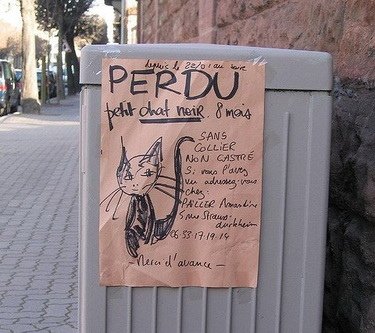 depuis le 22/01 au soir
PERDU
petit chat noir. 8 mois
SANS
COLLIER
NON CASTRÉ
Si vous l'avez
vu adressez-vous
chez:
PAILLER Amandine
5 rue Strauss-
durkheim
06-33-17-19-14
- Merci d'avance -